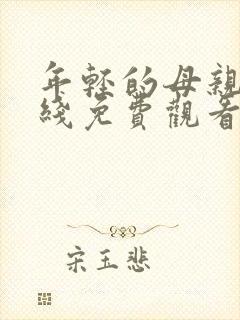 年轻的母親
綫免費觀看
宋玉悲